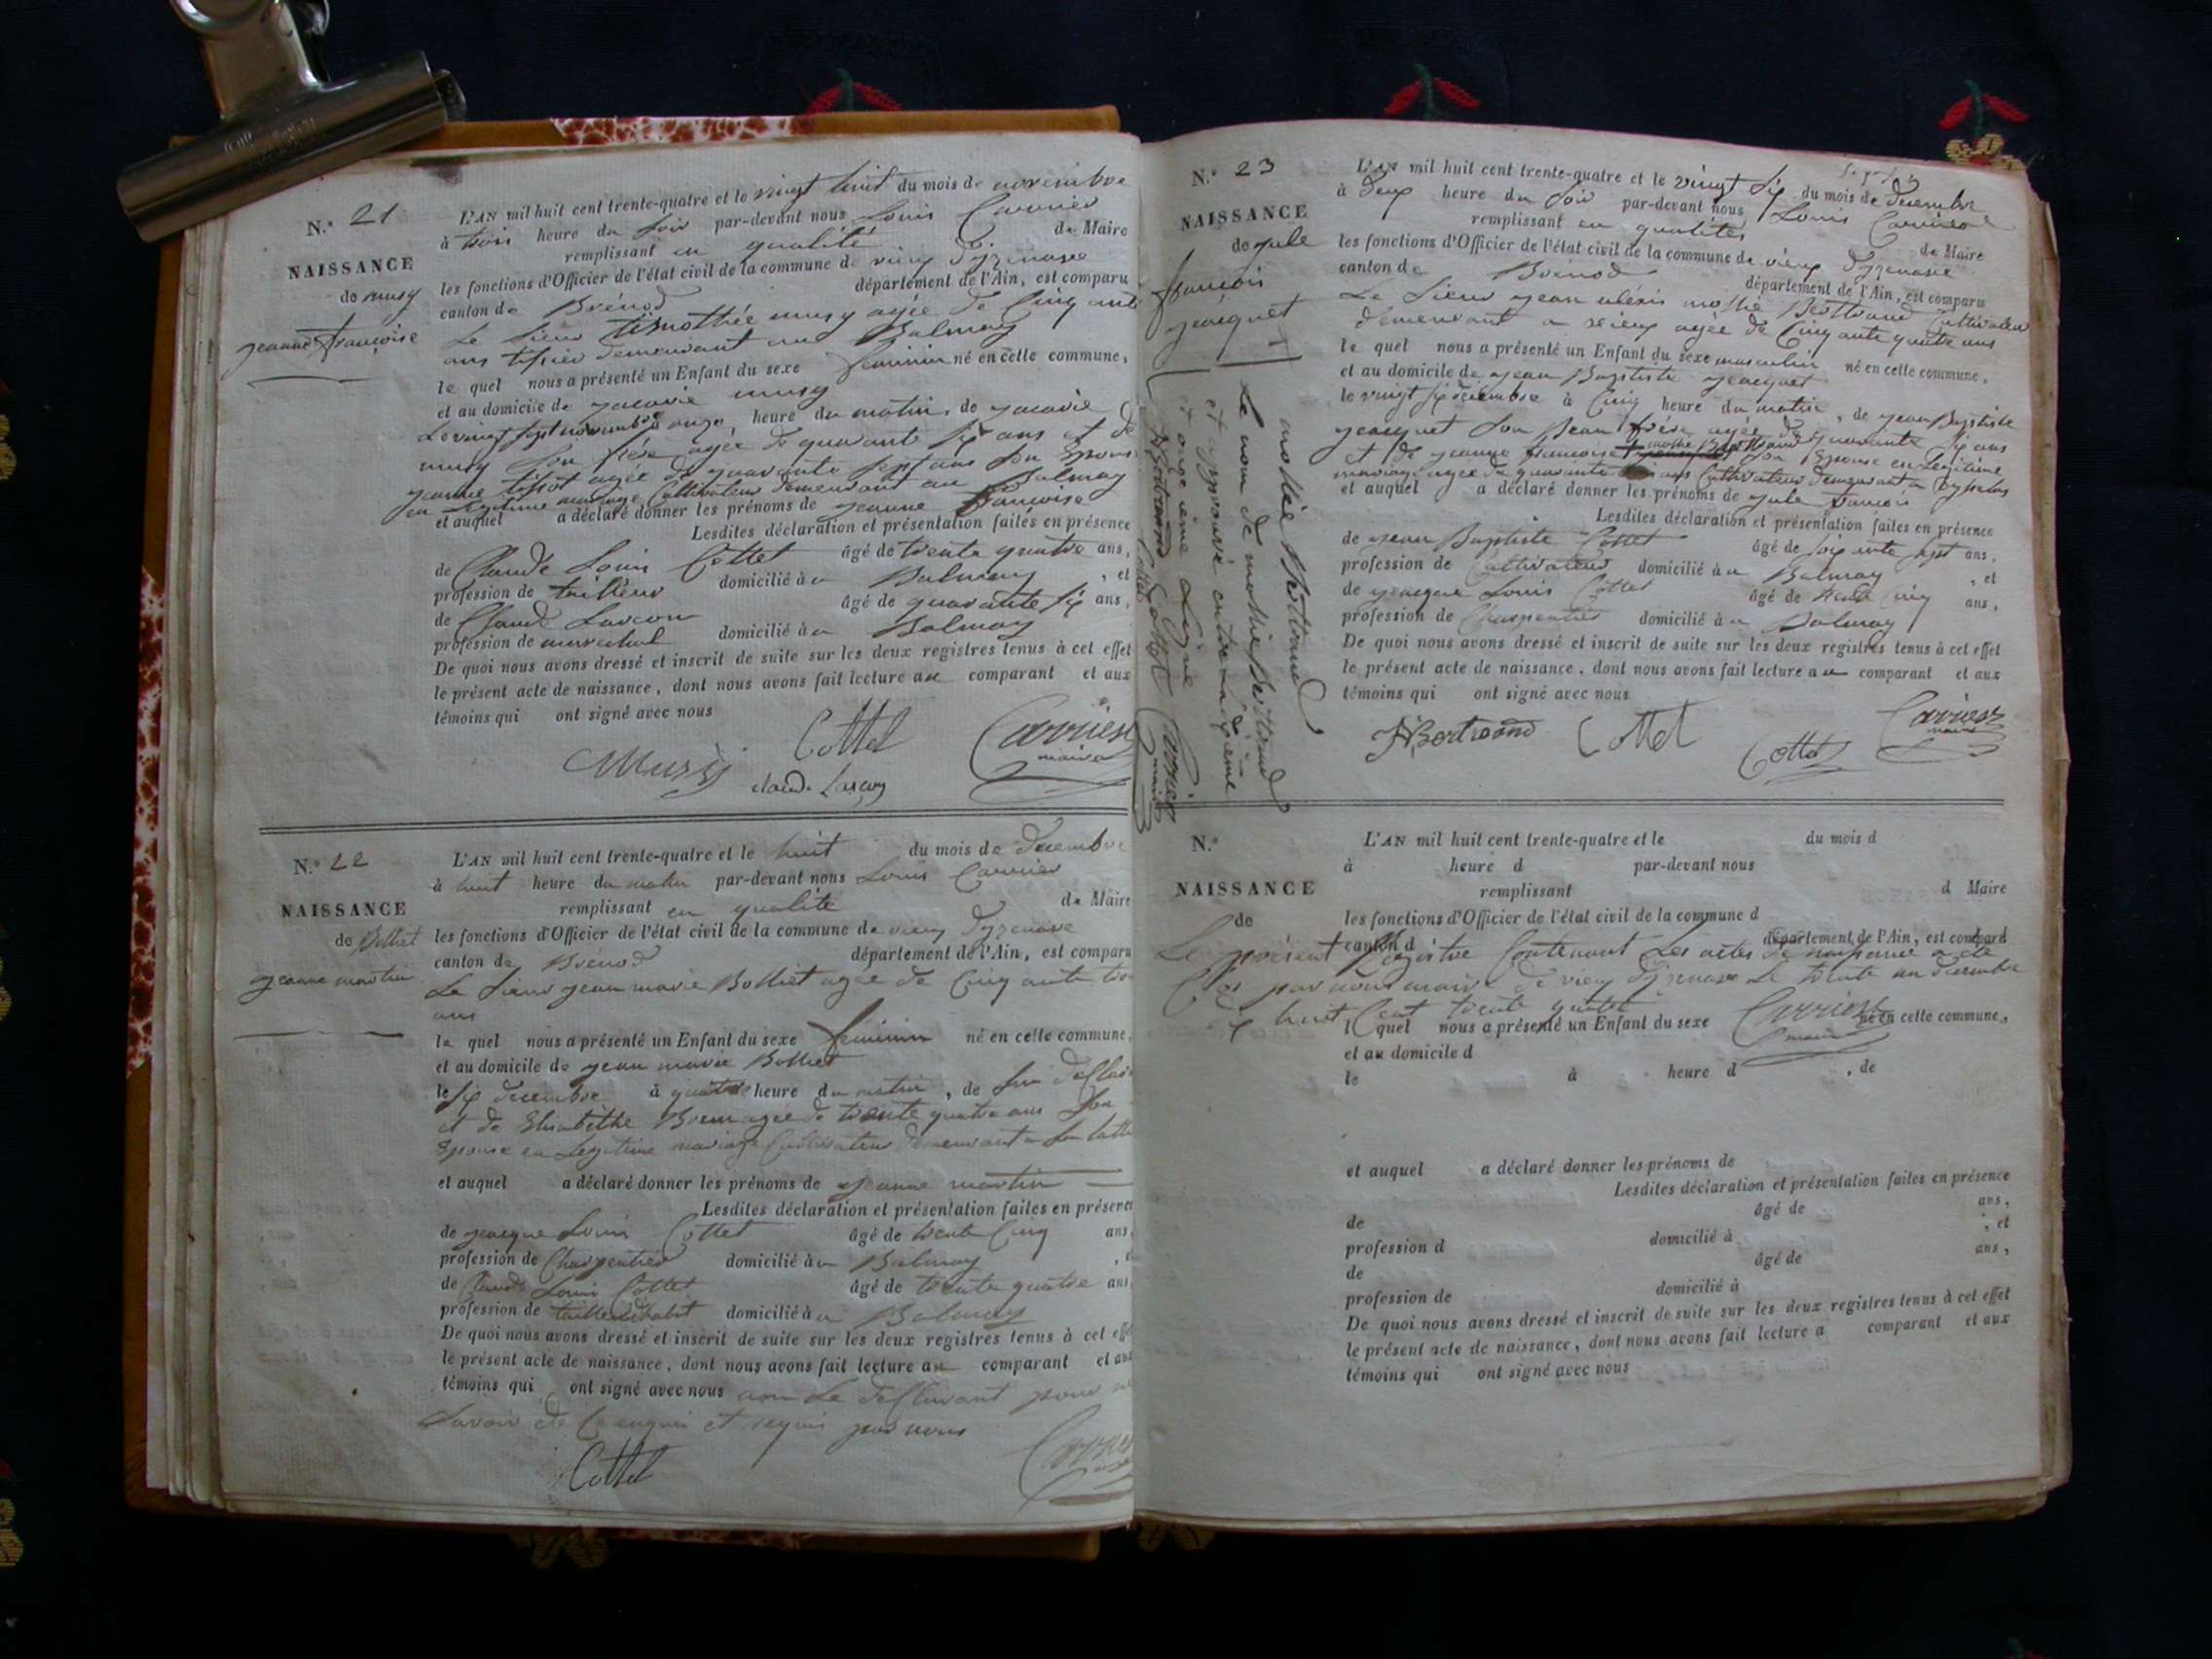 N.° 21
NAISSANCE
de musy
jeanne françoise
L'AN mil huit cent trente-quatre et le vingt huit du mois de novembre
à trois heure du soir par-devant nous Louis Carrier
remplissant en qualité de Maire
les fonctions d'Officier de l'état civil de la commune de vieux d'yzenave
canton de Brénod département de l'Ain, est comparu
Le sieur timothée musy agée de Cinq ante
ans tissier demeurant au Balmay
le quel nous a présenté un Enfant du sexe feminin né en celle commune,
et au domicile de zacarie musy
Le vingt sept novembre à onze heure du matin, de zacarie
musy son frère agée de quarante six ans et de
jeanne tissot agée de quarante sept ans son Epouse
en Legitime mariage Cultivateur demeurant au Balmay
et auquel a déclaré donner les prénoms de jeanne françoise
Lesdites déclaration et présentation faites en présence
de Claude Louis Cottet âgé de trente quatre ans,
profession de tailleur domicilié à u Balmay, et
de Claude Larcon âgé de quarante six ans,
profession de marechal domicilié à u Balmay
De quoi nous avons dressé et inscrit de suite sur les deux registres tenus à cet effet
le présent acte de naissance, dont nous avons fait lecture au comparant et aux
témoins qui ont signé avec nous
Cottet Carrier
maire
Musy
N.° 22
NAISSANCE
de Bolliet
jeanne martin
L'AN mil huit cent trente-quatre et le huit du mois de decembre
à huit heure du matin par-devant nous Louis Carrier
remplissant en qualité de Maire
les fonctions d'Officier de l'état civil de la commune de vieux d'yzenave
canton de Brenod département de l'Ain, est comparu
Le sieur jean marie Bolliet agée de Cinq ante
ans
le quel nous a présenté un Enfant du sexe feminin né en celle commune,
et au domicile de jean marie Bolliet
le six decembre à quatre heure du matin, de
et de Elisabethe agée de trente quatre ans son
Epouse en Legitime mariage Cultivateur demeurant a
et auquel a déclaré donner les prénoms de jeanne martin
Lesdites déclaration et présentation faites en présence
de jeacque Louis Cottet âgé de trente Cinq ans,
profession de Charpentier domicilié à u Balmay
de Claude Louis Cottet âgé de trente quatre ans
profession de tailleur d'habit domicilié à u Balmay
De quoi nous avons dressé et inscrit de suite sur les deux registres tenus à cet effet
le présent acte de naissance, dont nous avons fait lecture au comparant et aux
témoins qui ont signé avec nous non Le declarant pour ne
savoir de ce enquis et requis par nous
Cottet Carrier
N.° 23
NAISSANCE
de jule
francois
jeacquet
L'AN mil huit cent trente-quatre et le vingt six du mois de decembre
à deux heure du soir par-devant nous Louis Carrier
remplissant en qualités de Maire
les fonctions d'Officier de l'état civil de la commune de vieux d'yzenave
canton de Brenod département de l'Ain, est comparu
Le sieur jean alexis mollie Berttrand Cultivateur
demeurant a vieux agée de Cinq ante quatre ans
le quel nous a présenté un Enfant du sexe masculin né en celle commune,
et au domicile de jean Baptiste jeacquet
le vingt six decembre à Cinq heure du matin, de jean Baptiste
jeacquet son Beau frère agée de quarante six ans
et de jeanne francoise son Epouse en Legitime
mariage agée de quarante ans Cultivateur demeurant a
et auquel a déclaré donner les prénoms de jule francois
Lesdites déclaration et présentation faites en présence
de jean Baptiste Cottet âgé de soix ante sept ans,
profession de Cultivateur domicilié à u Balmay, et
de jeacque Louis Cottet âgé de trente Cinq ans,
profession de Charpentier domicilié à u Balmay
De quoi nous avons dressé et inscrit de suite sur les deux registres tenus à cet effet
le présent acte de naissance, dont nous avons fait lecture a u comparant et aux
témoins qui ont signé avec nous
Bertrand Cottet Cottet Carrier
maire
mollie Berttrand
Le nom de mollie Berttrand
et approuvé entre La dixième
et onzieme Ligne
Bertrand Cottet Cottet Carrier
maire
N.°
NAISSANCE
de
L'AN mil huit cent trente-quatre et le du mois d
à heure d par-devant nous
remplissant d Maire
les fonctions d'Officier de l'état civil de la commune d
canton d département de l'Ain, est comparu
Le présent Registre Contenant Les actes de naissance a été
Clos par nous maire de vieux d'yzenave Le trente un decembre
huit Cent trente quatre
Carrier
maire
l quel nous a présenté un Enfant du sexe né en celle commune,
et au domicile d
le à heure d , de
et auquel a déclaré donner les prénoms de
Lesdites déclaration et présentation faites en présence
de âgé de ans,
profession d domicilié à , et
de âgé de ans,
profession de domicilié à
De quoi nous avons dressé et inscrit de suite sur les deux registres tenus à cet effet
le présent acte de naissance, dont nous avons fait lecture a comparant et aux
témoins qui ont signé avec nous